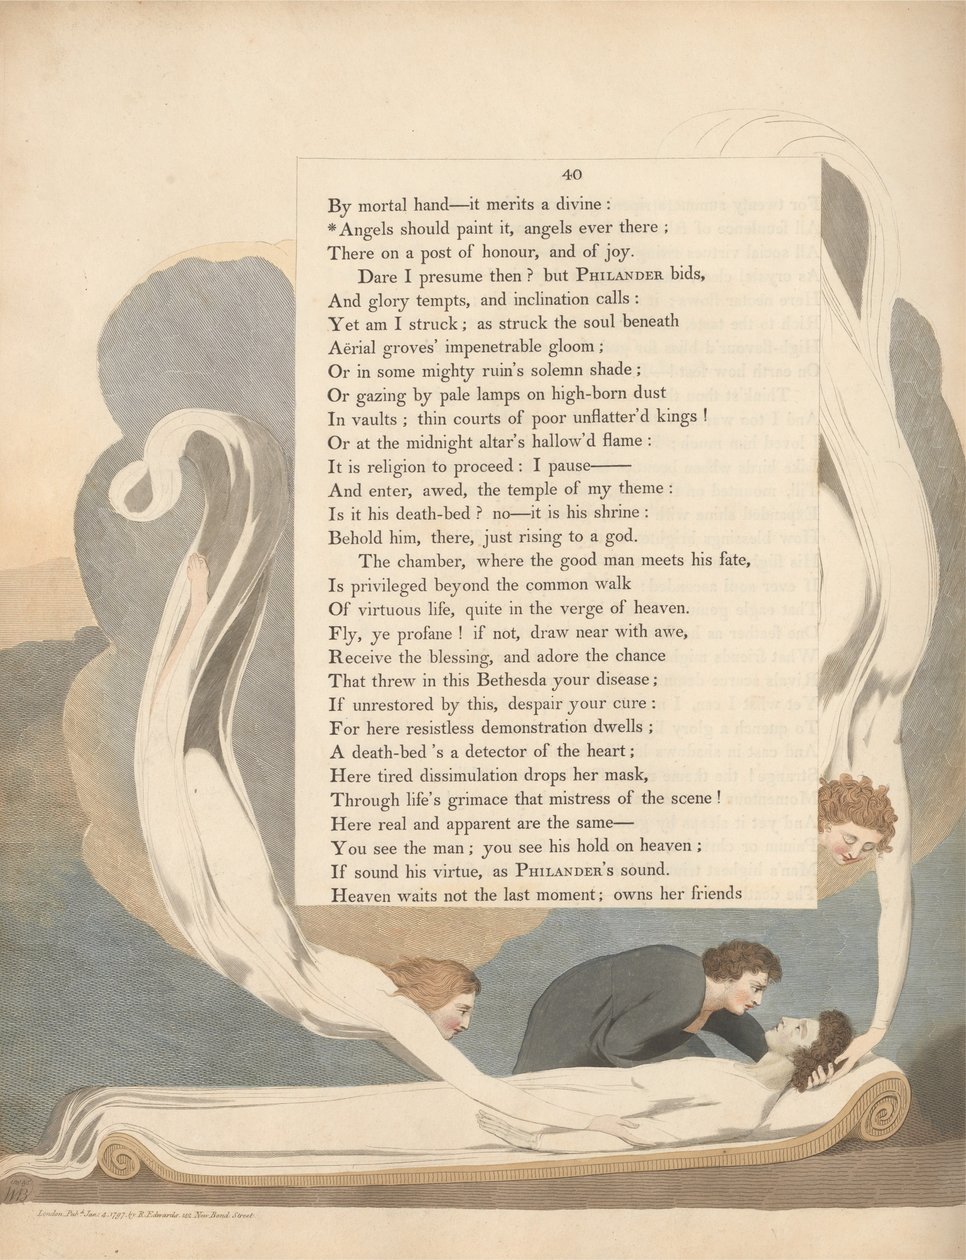 40
By mortal hand—it merits a divine :
*Angels should paint it, angels ever there ;
There on a post of honour, and of joy.
Dare I presume then ? but PHILANDER bids,
And glory tempts, and inclination calls :
Yet am I struck ; as struck the soul beneath
Aërial groves' impenetrable gloom ;
Or in some mighty ruin's solemn shade ;
Or gazing by pale lamps on high-born dust
In vaults ; thin courts of poor unflatter'd kings !
Or at the midnight altar's hallow'd flame :
It is religion to proceed : I pause——
And enter, awed, the temple of my theme :
Is it his death-bed ? no—it is his shrine :
Behold him, there, just rising to a god.
The chamber, where the good man meets his fate,
Is privileged beyond the common walk
Of virtuous life, quite in the verge of heaven.
Fly, ye profane ! if not, draw near with awe,
Receive the blessing, and adore the chance
That threw in this Bethesda your disease ;
If unrestored by this, despair your cure :
For here resistless demonstration dwells ;
A death-bed 's a detector of the heart ;
Here tired dissimulation drops her mask,
Through life's grimace that mistress of the scene !
Here real and apparent are the same—
You see the man ; you see his hold on heaven ;
If sound his virtue, as PHILANDER'S sound.
Heaven waits not the last moment ; owns her friends
WB
London. Pub.d Jan: 4. 1797. by R. Edwards. 142 New Bond Street